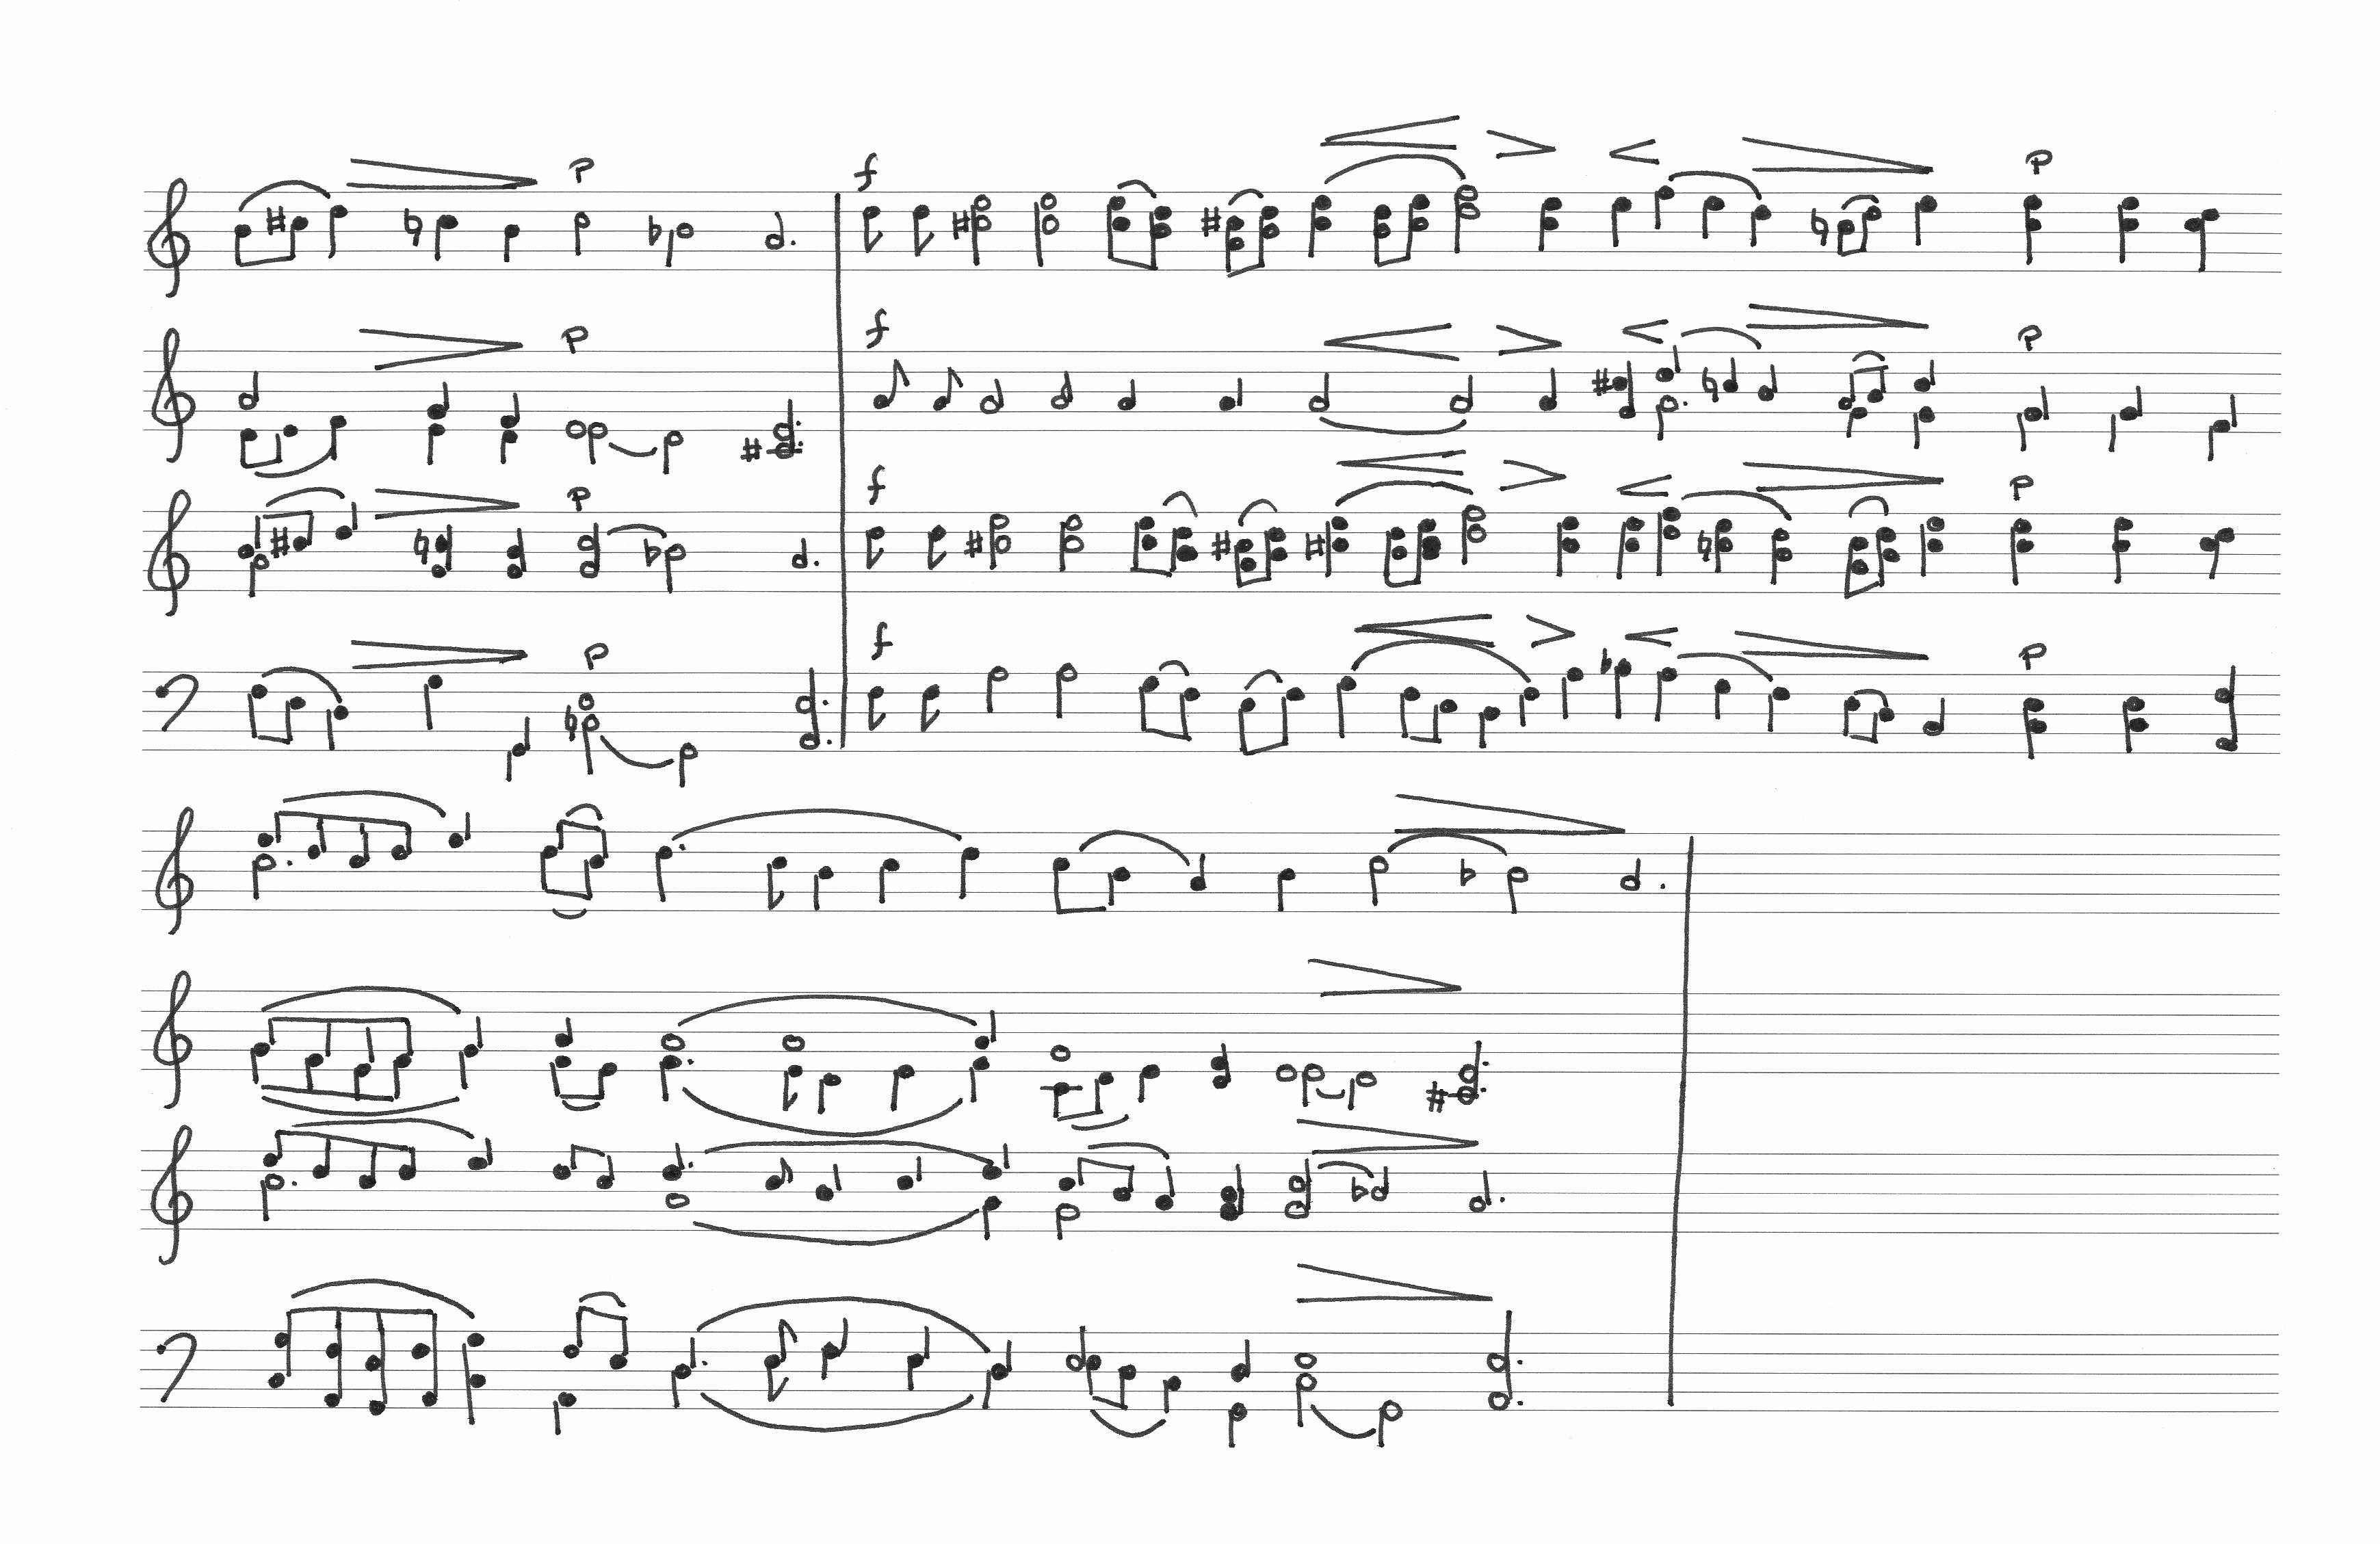 p f p
f p p
f p p
f p p